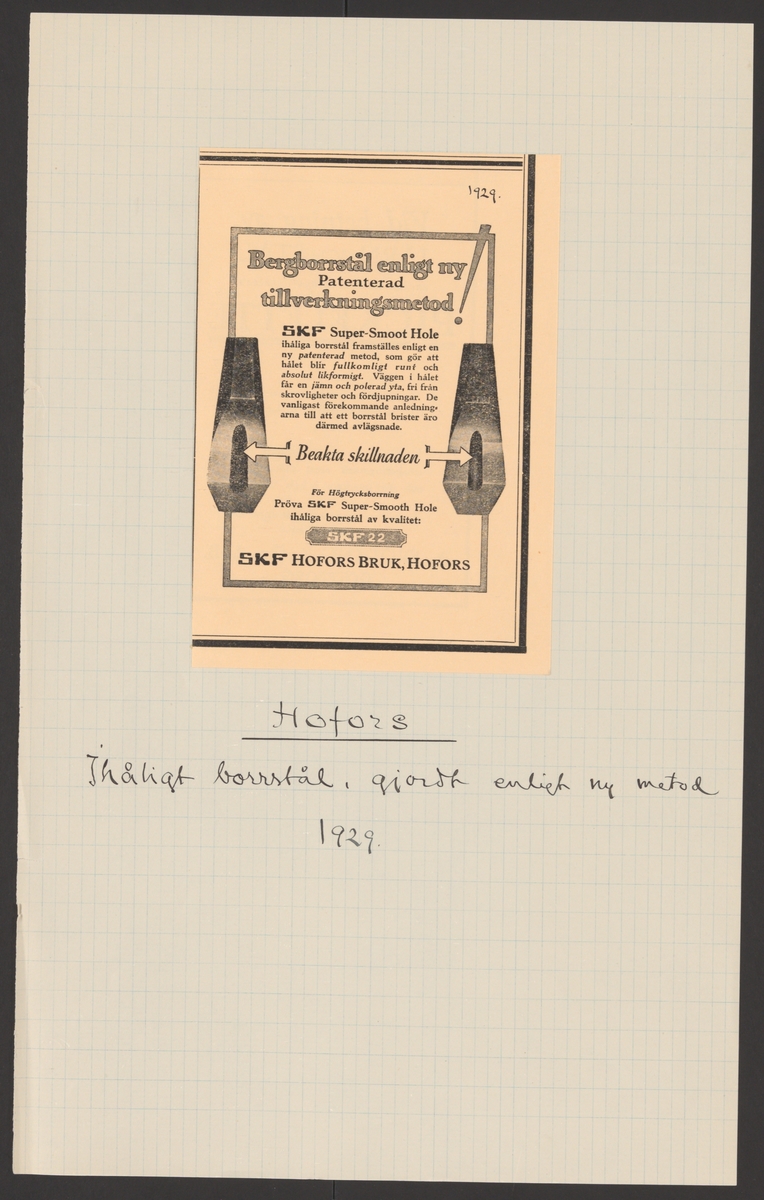 1929.
Bergborrstål enligt ny!
Patenterad
tillverkningsmetod
SKF Super-Smoot Hole
ihåliga borrstål framställes enligt en
ny patenterad metod, som gör att
hålet blir fullkomligt runt och
absolut likformigt. Väggen i hålet
får en jämn och polerad yta, fri från
skrovligheter och fördjupningar. De
vanligast förekommande anledning-
arna till att ett borrstål brister äro
därmed avlägsnade.
Beakta skillnaden
För Högtrycksborrning
Pröva SKF Super-Smooth Hole
ihåliga borrstål av kvalitet:
SKF 22
SKF HOFORS BRUK, HOFORS
Hofors
Ihåligt borrstål, gjordt enligt ny metod
1929.